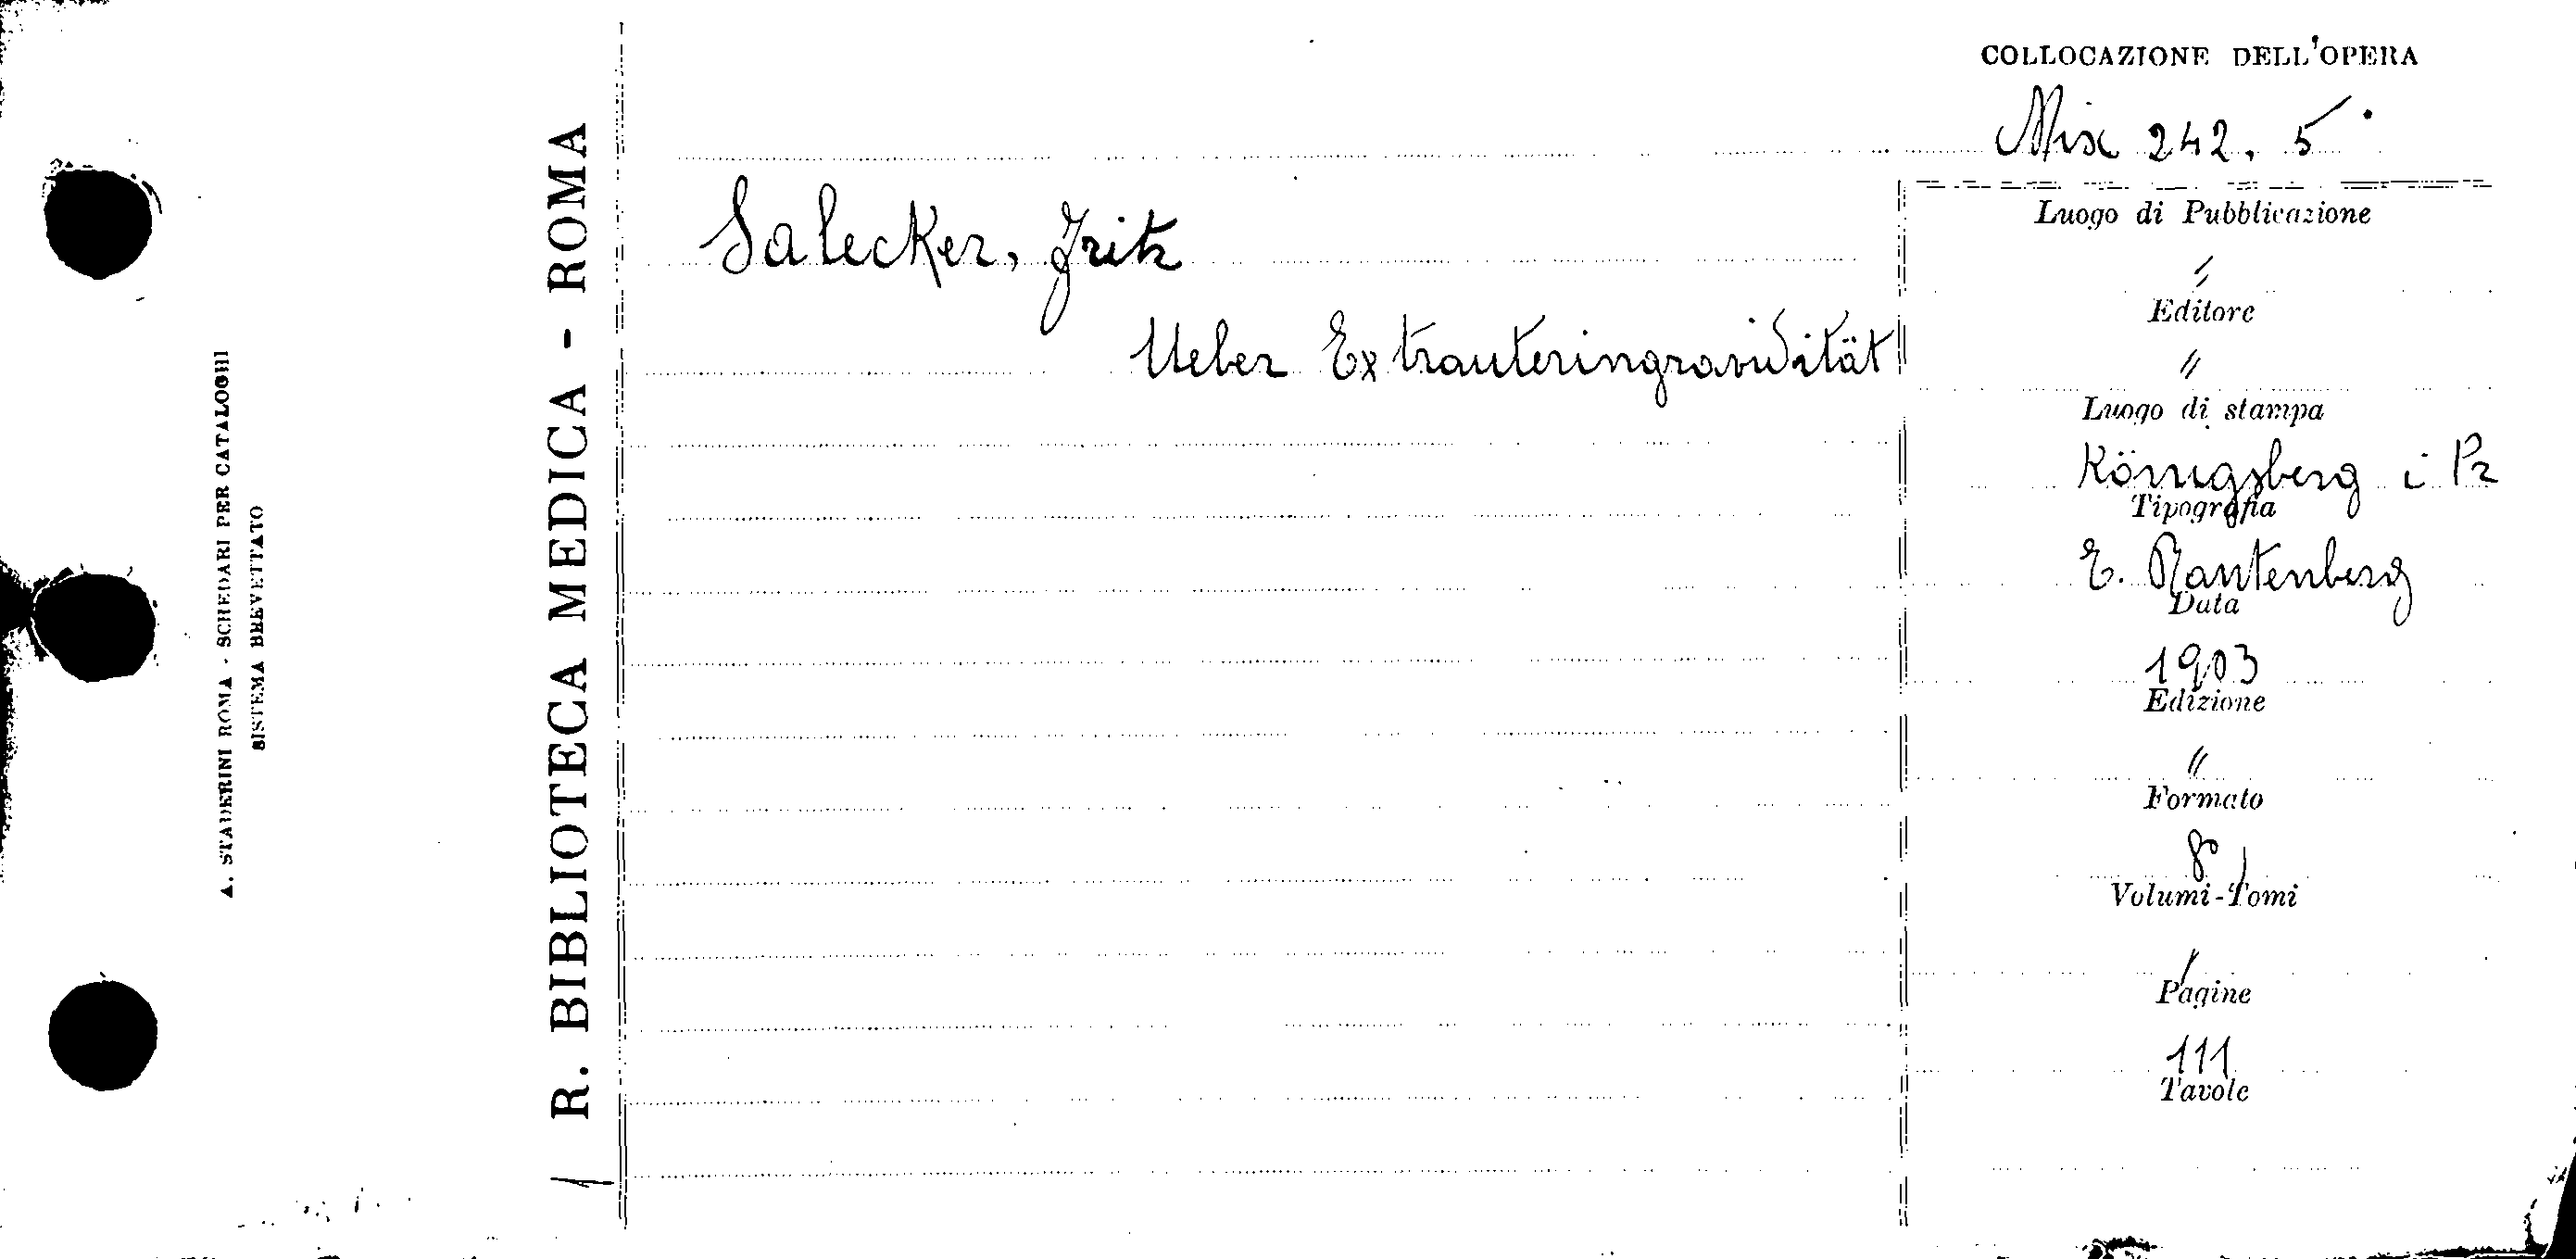 COLLOCAZIONE DELL'OPERA
Mix 242. 5
Salecker, Fritz
Ueber Extrauteringravidität
Luogo di Pubblicazione
"
Editore
"
Luogo di stampa
Königsberg i Pr
Tipografia
E. Rautenberg
Data
1903
Edizione
"
Formato
8°
Volumi-Tomi
/
Pagine
111
Tavole
R. BIBLIOTECA MEDICA - ROMA
A. STADERINI ROMA - SCHEDARI PER CATALOGHI
SISTEMA BREVETTATO